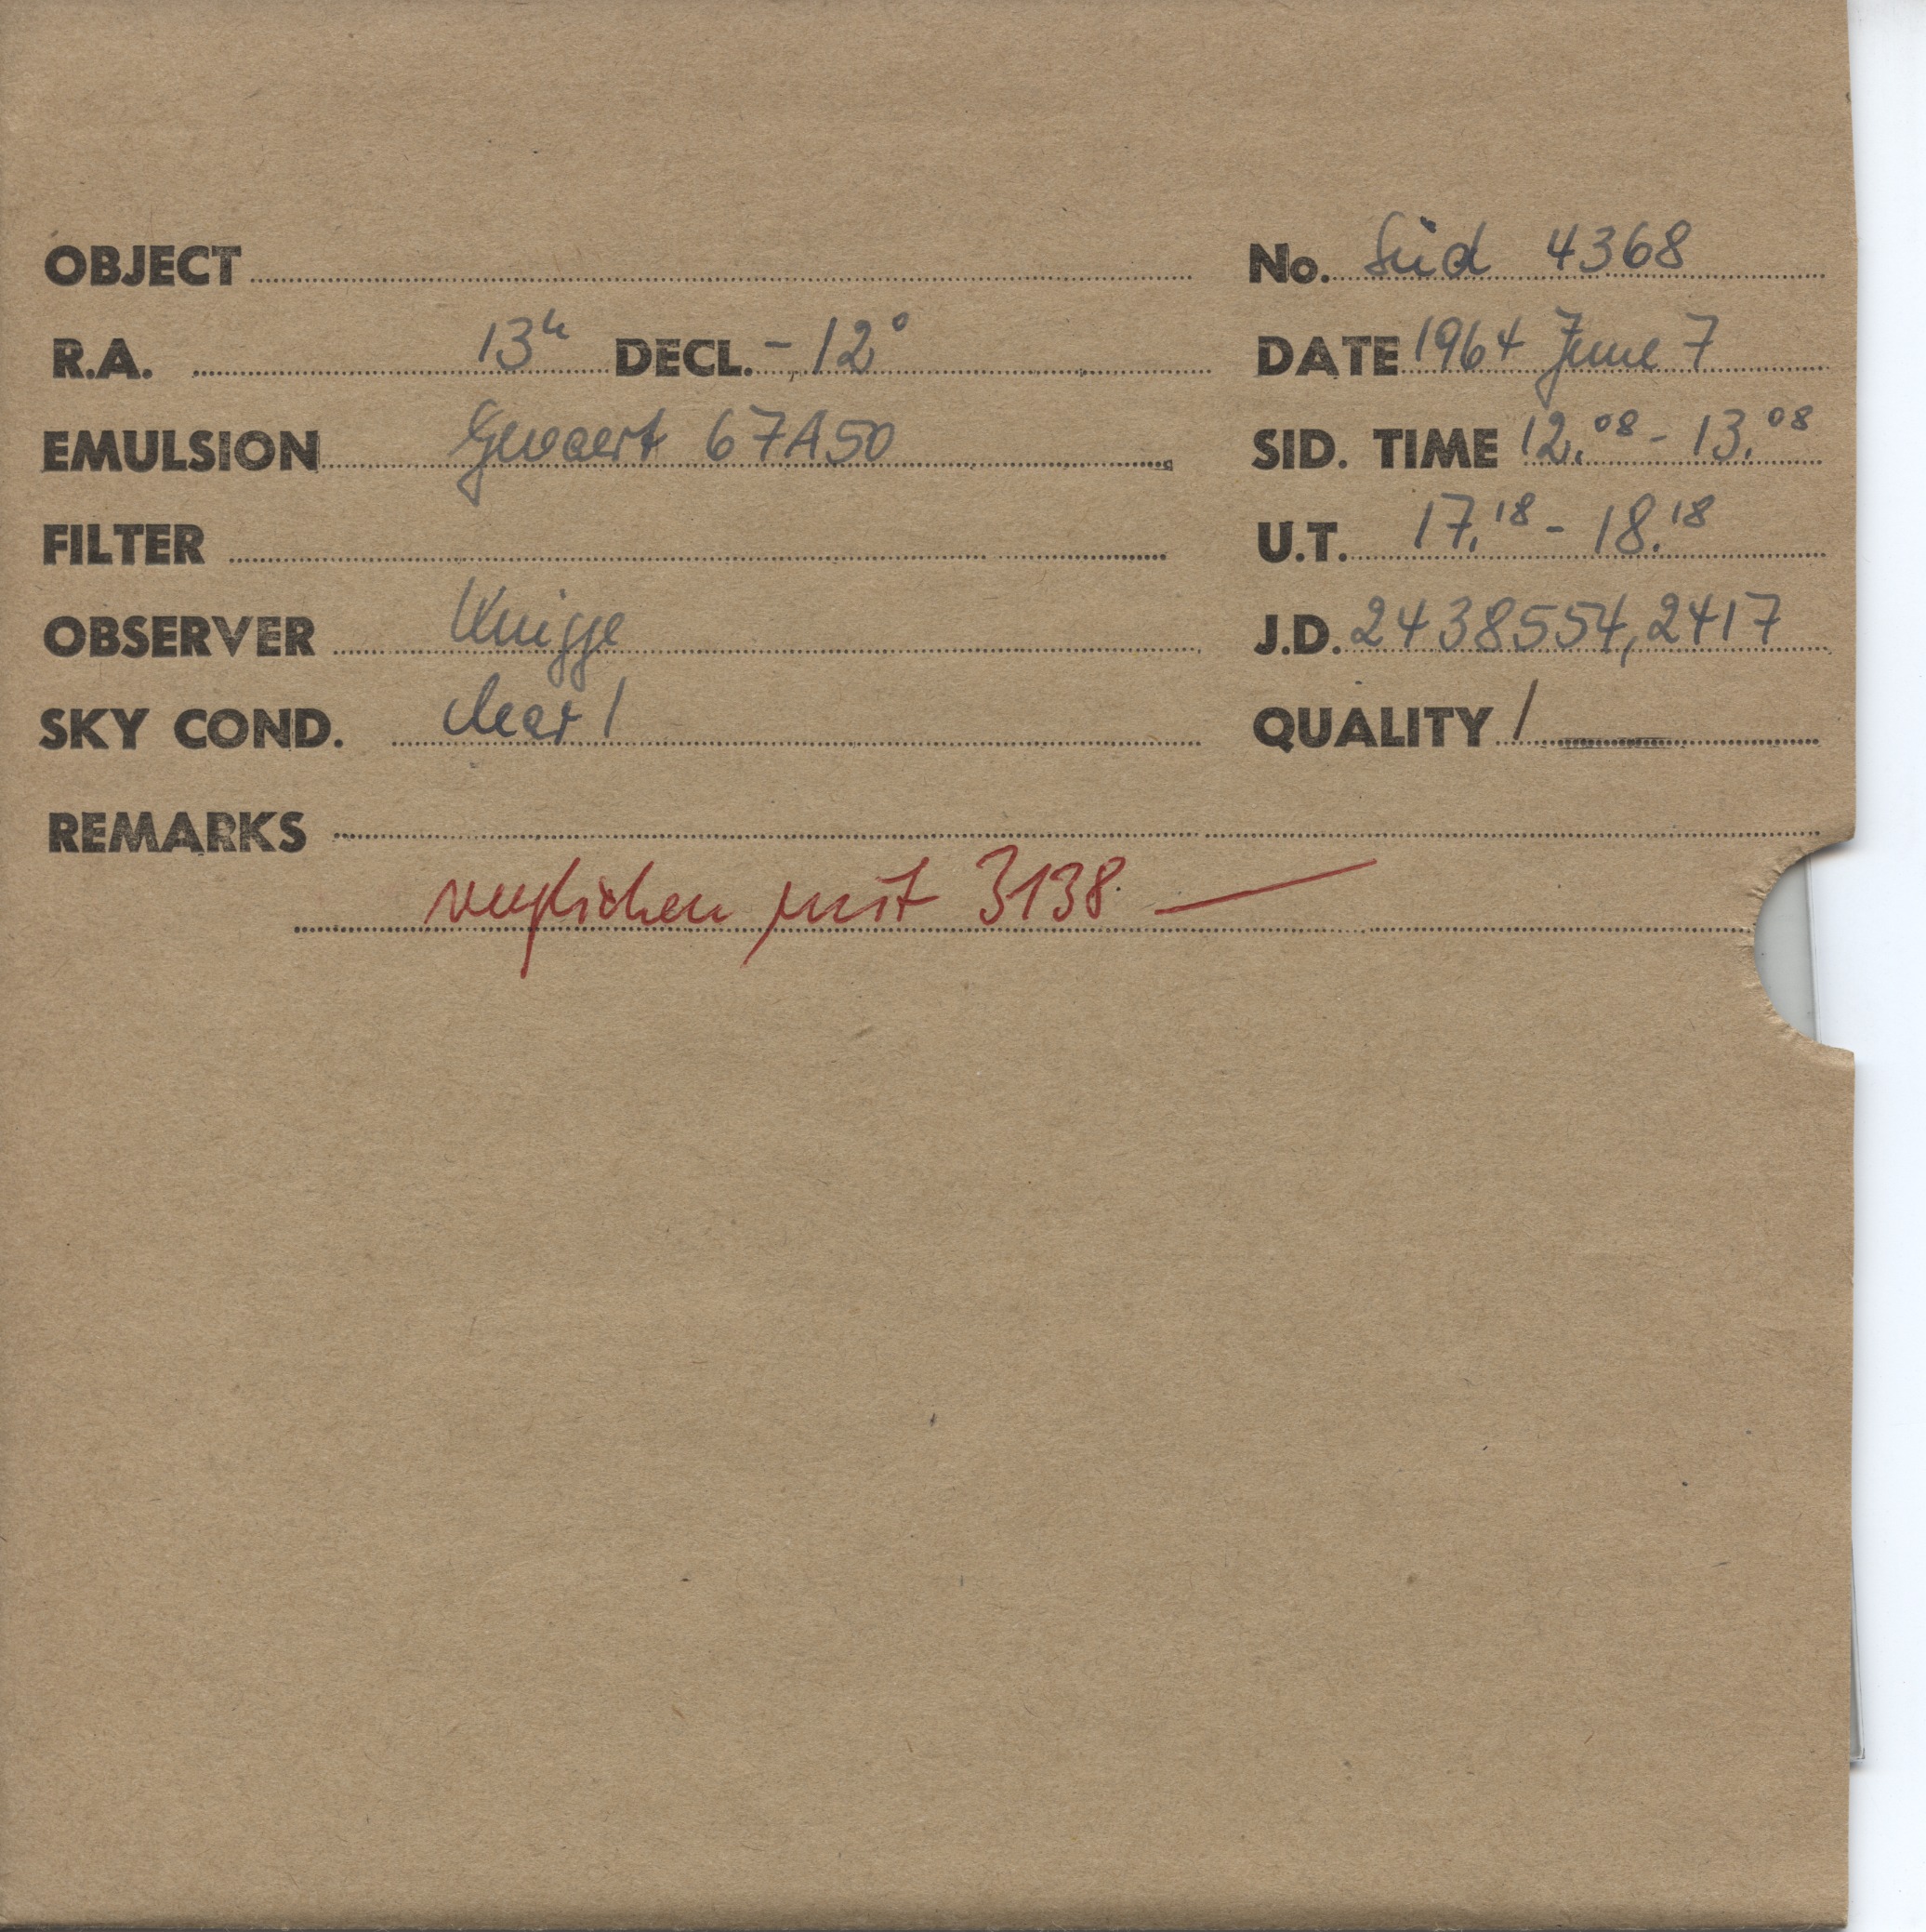 OBJECT No. Süd 4368
R.A. 13h DECL. -12° DATE 1964 June 7
EMULSION Gevaert 67A50 SID. TIME 12.08 - 13.08
FILTER U.T. 17.18 - 18.18
OBSERVER Knigge J.D. 2438554,2417
SKY COND. clear 1 QUALITY 1
REMARKS
verglichen mit 3138 —